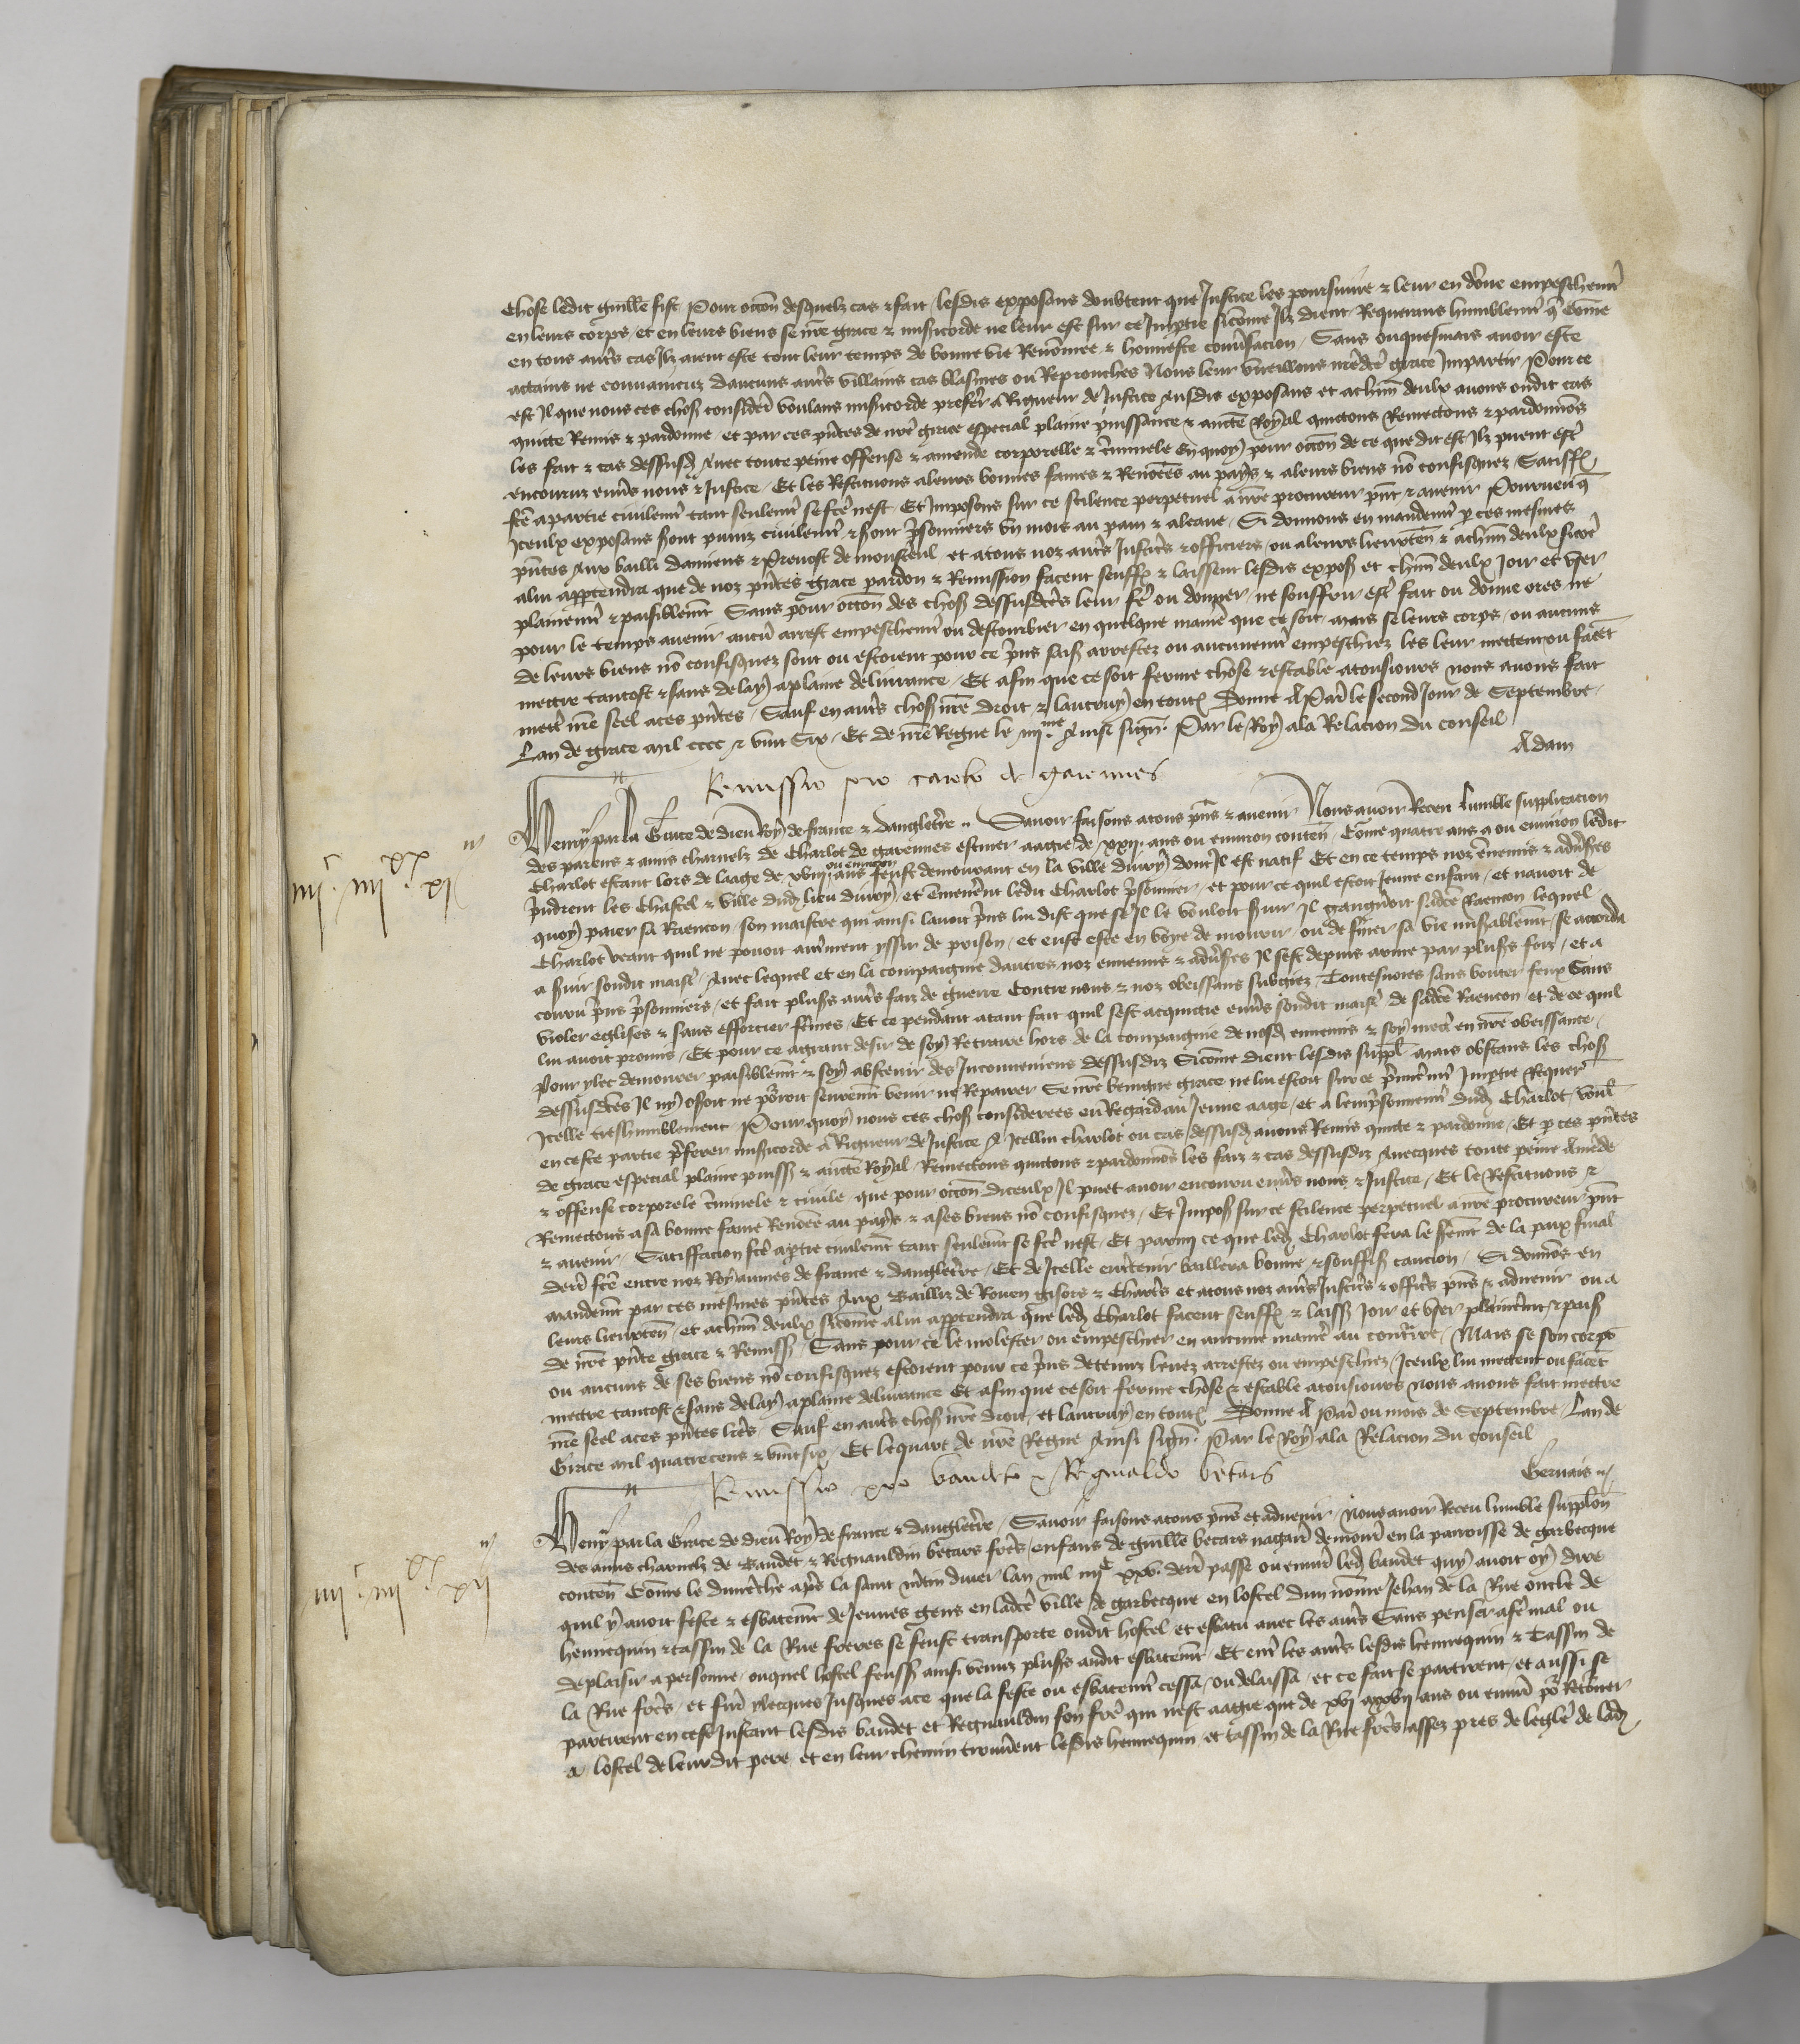 chose ledit guille fist Pour occon desquelz cas & fait lesdis exposans doubtent que Justice les poursuive & leur en done empeschemt
en leurs corps et en leurs biens se nre grace & misicorde ne leur est sur ce Imptie sicome Ilz dient Requerans humblemt q come
en tous autrs cas Ilz aient este tout leur temps de bonne vie Renomee & honneste conusacion Sans onquesmais avoir este
attains ne convaincuz daucuns autrs villains cas blasmes ou Reprouches Nous leur vueillons nredce grace Impartir Pour ce
est Il que nous ces chos consider voulans misicorde preferer a Rigueur de Justice Ausdis exposans et a chun deulx avons ou dit cas
quicte Remis & pardonne et par ces pntes de nre grace especial plaine puissance & aucte Royal quictons Remectons & pardonnos
les fait & cas dessusd Avec toute peine offense & amende corporelle & criminele En quoy pour occon de ce que dit est Ilz puent estre
encouruz envs nous & Justice Et les Restituons a leurs bonnes fames & Renomees au pays & a leurs biens no confisquez Satiff
fce a partie civilemt tant seulemt se fce nest Et Imposons sur ce scilence perpetuel a nre procureur pnt & avenir Pourveu q
Iceulx exposans sont puniz civilemt & sont prsonniers un mois au pain & a leaue Si donnons en mandemt p ces mesmes
pntes Aux bailli damiens & Prevost de monsteul et a tous noz autrs Justicrs & officiers ou a leurs lieuxten & a chun deulx sicome
a lui appartendra que de noz pntes grace pardon & Remission facent seuff & laissent lesdis expos et chun deulx Joir et user
plainemt & paisiblemt Sans pour occon des chos dessusdces leur fe ou donner ne souffrir estre fait ou donne ores ne
pour le temps avenir aucu arrest empeschemt ou destourbier en quelque manie que ce soit mais se leurs corps ou aucuns
de leurs biens no confisquez sont ou estoient pour ce prins saisis arrestez ou aucunemt empeschiez les leur mectent ou facet
mectre tantost & sans delay a plaine delivrance Et afin que ce soit ferme chose & estable a tousiours nous avons fait
mectre nre seel a ces pntes Sauf en autrs chos nre droit & lautruy en toutes Donne A Paris le second Jour de Septembre
Lan de grace mil cccc & vint Six Et de nre Regne le iiii me Ainsi sign Par le Roy a la Relacion du conseil
Adam
Remissio pro carolo de garennes
Henry par la Grace de dieu Roy de france & dangletere Savoir faisons a tous pns & avenir Nous avoir Receu Lumble supplicacion
des parens & amis charnelz de Charlot de garennes escuier aagie de xxii ans ou environ conten Come quatre ans a ou environ ledit
Charlot estant lors de laage de xviii ans ou environ feust demourant en la ville divry dont Il est natif Et en ce temps noz ennemis & advsres
prindrent les Chastel & ville dud lieu divry et emmenerent ledit Charlot prisonnier et pour ce quil estoit Jeune enfant et navoit de
quoy paier sa Raencon son maistre qui ainsi lavoit prins lui dist que se Il le vouloit servir Il gaigneroit sadce Raencon lequel
Charlot veant quil ne povoit autrement yssir de prison et eust este en voye de mourir ou de finer sa vie misablemt se accorda
a servir sondit maistre Avec lequel et en la compaignie dautres noz ennemis & advsres Il sest depuis arme par plusrs foiz et a
couru prins prisonniers et fait plusrs autrs faiz de guerre Contre nous & noz obeissans subgiez Toutesvoies sans bouter feux Sans
violer eglises & sans efforcier femes Et ce pendant a tant fait quil sest acquictie envs sondit maistre de sadce Raencon et de ce quil
lui avoit promis Et pour ce a grant desir de soy Retraire hors de la compaignie de nosd ennemis & soy mectre en nre obeissance
Pour ylec demourer paisiblemt & soy abstenir des Inconveniens dessusdiz Sicome dient lesdis suppl mais obstans les chos
dessusdces Il ny osoit ne pourroit seuremt venir ne Reparer Se nre benigne grace ne lui estoit sur ce premieremt Imptie Requer
Icelle treshumblement Pour quoy nous ces chos considerees eu Regard au Jeune aage et a lemprisonnemt dud Charlot voul
en ceste partie preferer misicorde a Rigueur de Justice A Icellui charlot ou cas dessusd avons Remis quicte & pardonne Et p ces pntes
de grace especial plaine puiss & aucte Royal Remectons quictons & pardonnos les faiz & cas dessusdiz Avecques toute peine Amede
& offense corporele criminele & civile que pour occon diceulx Il puet avoir encouru envs nous & Justice Et le Restituons &
Remectons a sa bonne fame Renomee au pays & a ses biens no confisquez Et Impos sur ce scilence perpetuel a nre procureur pnt
& avenir Satiffacion fce a ptie civilemt tant seulemt se fce nest Et parmi ce que led Charlot fera le sermt de la paix final
derr fce entre noz Royaumes de france & dangletere Et de Icelle entretenir baillera bonne & souffis caucion Si donnos en
mandemt par ces mesmes pntes Aux Bailliz de Rouen gisors & Chartrs et a tous noz autrs Justicrs & officrs pns & advenir ou a
leurs lieuxten et a chun deulx sicome a lui appartendra que led Charlot facent seuff & laiss Joir et user plainemt & pais
de nre pnte grace & Remiss Sans pour ce le molester ou empeschier en aucune manie au contraire Mais se son corps
ou aucuns de ses biens no confisquez estoient pour ce prins detenuz levez arrestez ou empeschiez Iceulx lui mectent ou facet
mectre tantost & sans delay a plaine delivrance Et afin que ce soit ferme chose & estable a tousiours nous avons fait mectre
nre seel a ces pntes lres Sauf en autrs chos nre droit et lautruy en toutes Donne A Paris ou mois de Septembre Lan de
Grace mil quatrecens & vint six Et le quart de nre Regne Ainsi sign Par le Roy a la Relacion du conseil
Gervais
Remissio pro baudeto & Reginaldo betars
Henry par la Grace de dieu Roy de france & dangletere Savoir faisons a tous pns et advenir Nous avoir Receu lumble supplon
des amis charnelz de Baudet & Regnauldin betars freres enfans de guille betars nagaires demour en la parroisse de garbecque
conten Come le dimenche apres la saint mtin diver lan mil iiiic xxv derr passe ou environ led baudet quy avoit oy dire
quil y avoit feste & esbatemt de Jeunes gens en ladce ville de garbecque en lostel dun nome Jehan de la Rue oncle de
hennequin & tassin de la Rue freres se feust transporte oudit hostel et esbatu avec les autrs Sans penser a fe mal ou
deplaisir a personne ouquel hostel feuss ainsi venuz plusrs audit esbatemt Et entre les autrs lesdis hennequin & Tassin de
la Rue frers et furent ylecques Jusques a ce que la feste ou esbatemt cessa ou delaissa et ce fait se partirent et aussi se
partirent en cest Instant lesdis baudet et Regnauldin son frere qui nest aagie que de xvi a xvii ans ou environ por Retourner
a lostel de leurdit pere et en leur chemin trouverent lesdis hennequin et tassin de la Rue freres assez pres de leglise de lad